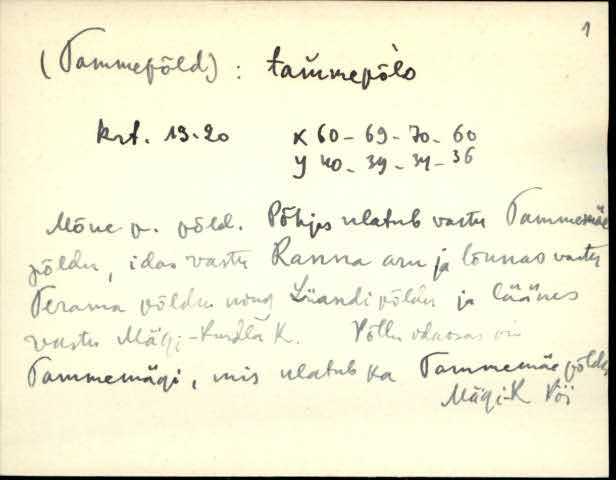 1
(Tammepõld) : tammepõlo
krt. 19-20 X 60 - 69 - 70 - 60
Y 40 - 39 - 37 - 36
Mõne p. põld. Põhjas ulatub vastu Tammemäe
põldu, idas vastu Ranna aru ja lõunas vastu
Terama põldu ning Liiandi põldu ja läänes
vastu Mägi-Kurdla K. Põllu idaosas on
Tammemägi, mis ulatub ka Tammemäe põldu
Mägi-K Pöi